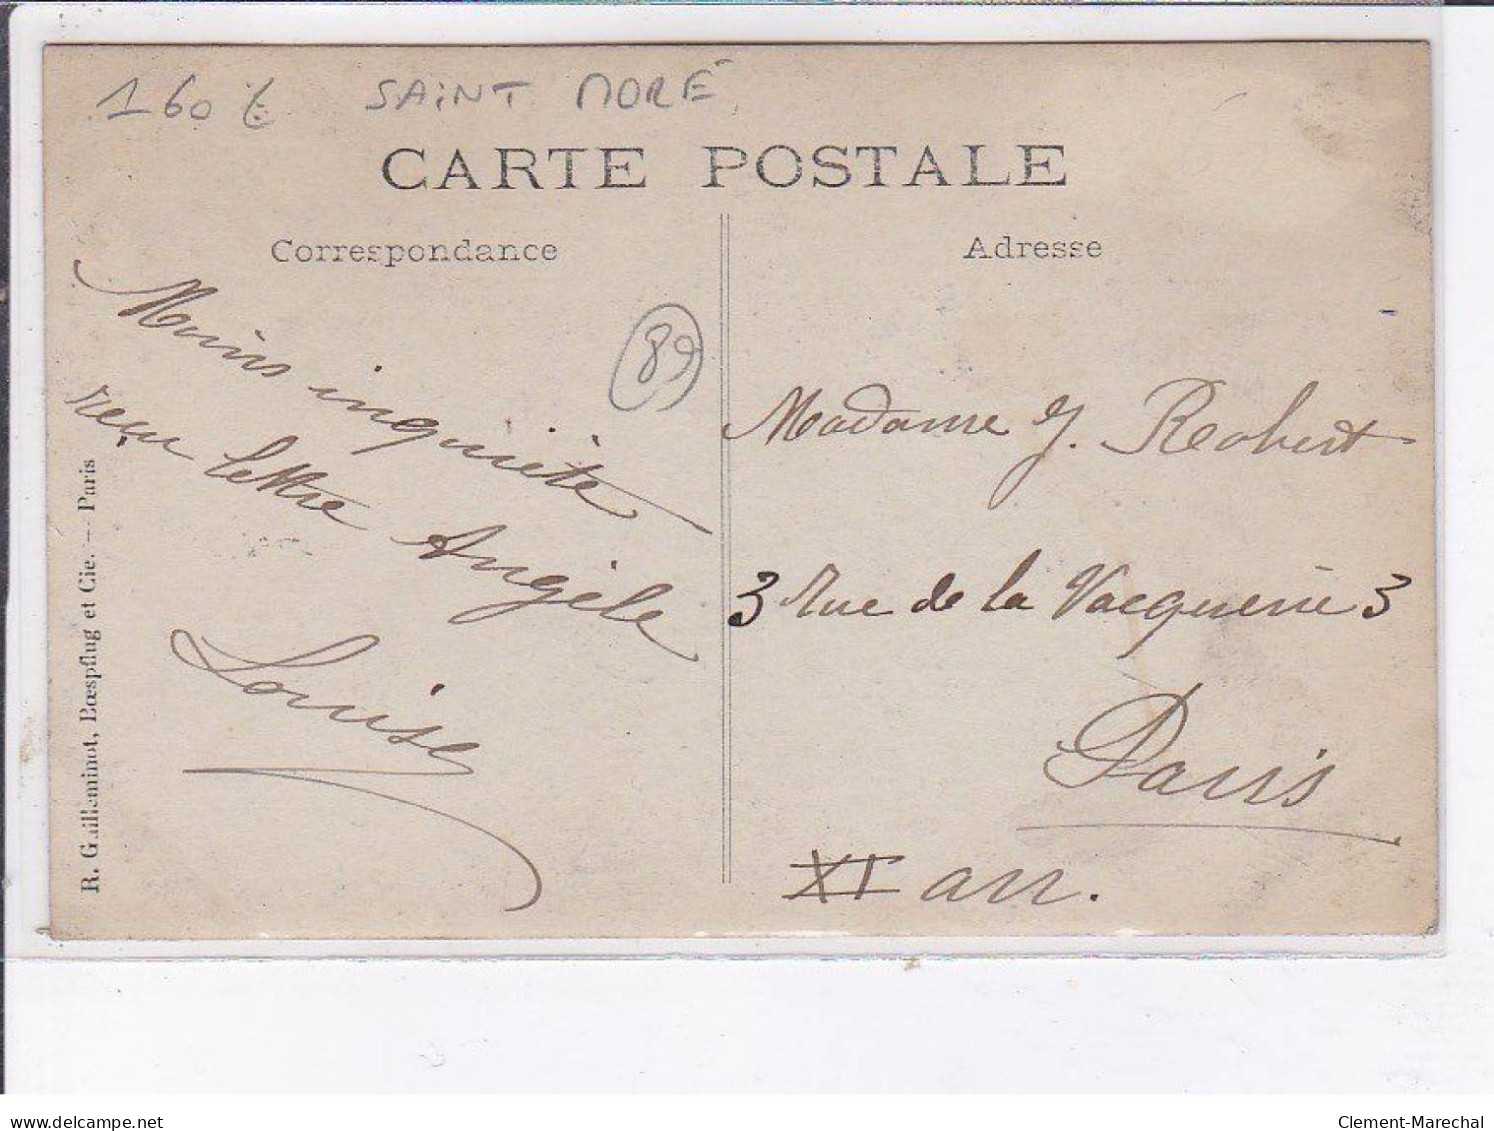 160 €
SAINT MORÉ
CARTE POSTALE
Correspondance
Adresse
Moins inquiète
recu lettre Angèle
Louise
89
Madame J. Robert
3 Rue de la Vacquerie 3
Paris
XI arr.
R. Guilleminot, Bœspflug et Cie. — Paris
delcampe.net
Clement-Marechal